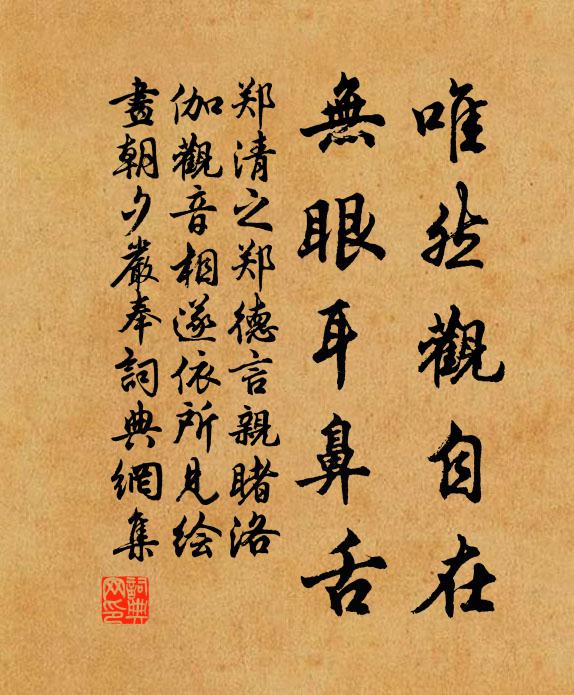 唯然觀自在
無眼耳鼻舌
郑清之郑德言親睹洛
伽觀音相遂依所見绘
畫朝夕嚴奉詞典網集
詞典网印